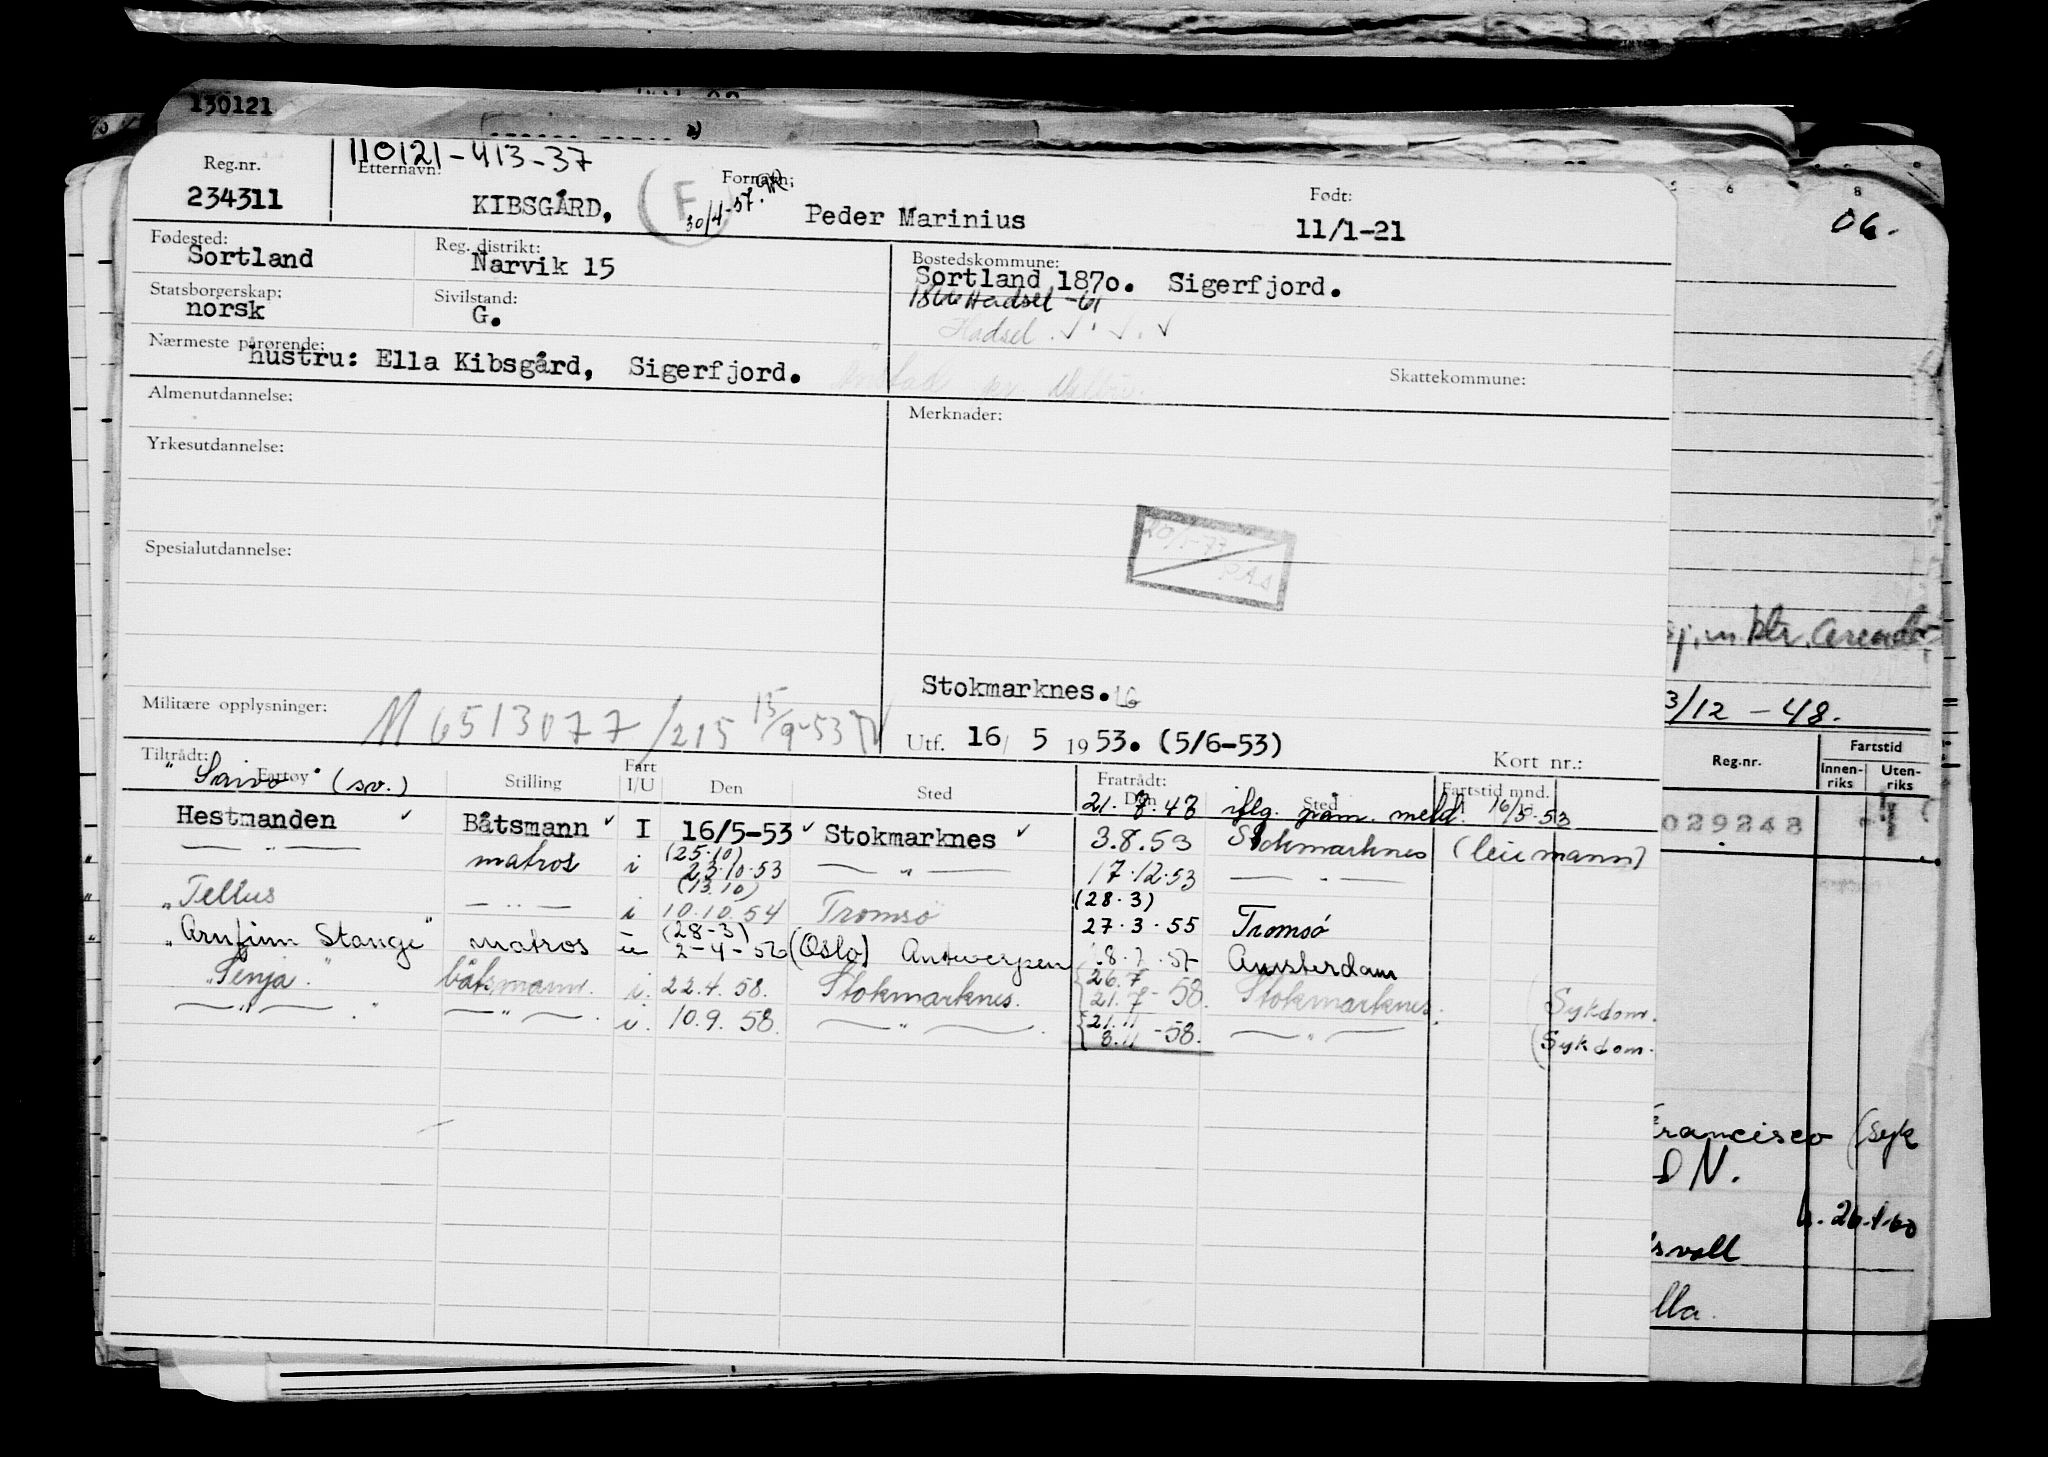 130121
Reg.nr. 110121-413-37
Etternavn: Fornavn: Født:
234311 KIBSGÅRD, (F) 30/4-57. Peder Marinius 11/1-21
06.
Fødested: Reg. distrikt: Bostedskommune:
Sortland Narvik 15 Sortland 1870. Sigerfjord.
Statsborgerskap: Sivilstand: 1866 Hadsel -61
norsk G. Hadsel
Nærmeste pårørende:
hustru: Ella Kibsgård, Sigerfjord.
Skattekommune:
Almenutdannelse: Merknader:
Yrkesutdannelse:
Spesialutdannelse:
20/1-77
Stokmarknes.
Militære opplysninger: M 6513077/215 15/9-53
Utf. 16/ 5 1953. (5/6-53)
Kort nr.:
Tiltrådt: Fartøy Stilling Fart I/U Den Sted Fratrådt: Den Sted Fartstid mnd.
(sv.) 21.7.47 iflg. meld. 16/5.53
Hestmanden Båtsmann I 16/5-53 Stokmarknes 3.8.53 Stokmarknes
— " — matros i (25.10) 23.10.53 — " — 17.12.53 — " —
"Tellus — " — i (13.10) 10.10.54 Tromsø (28.3) 27.3.55 Tromsø
"Arnfinn Stange" matros u (28-3) 2-4-56 (Oslo) Antwerpen 57 Amsterdam
"Senja" båtsmann. i. 22.4.58. Stokmarknes. {26.7 21.7-58. Stokmarknes. Sykdom.
— " — . — " — . i. 10.9.58. — " — . {21.11 3.11-58. — " — (Sykdom.
3/12 -48.
Reg.nr. Fartstid
Innenriks Utenriks
029243
Francisco (syk
D N.
26.1.60